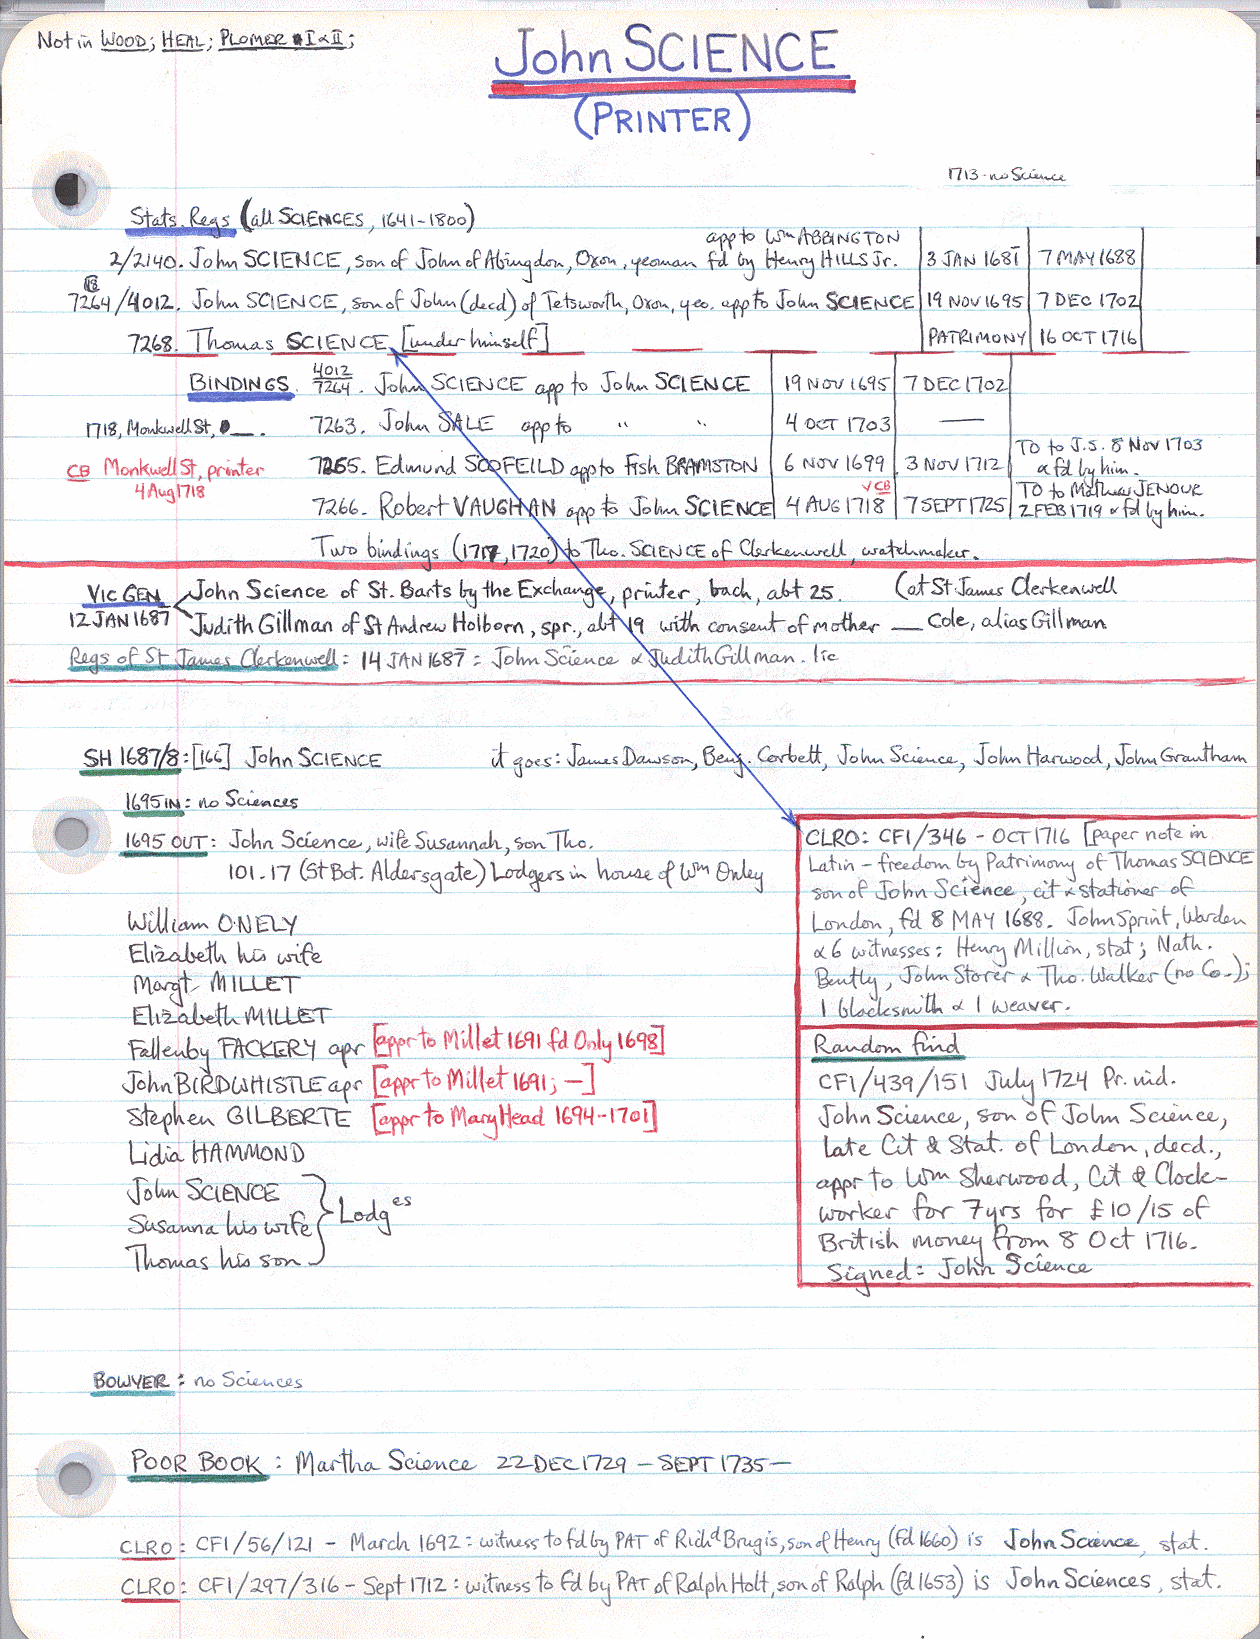 Not in WOOD; HEAL; PLOMER I & II;
John SCIENCE
(PRINTER)
1713 - no Science
Stats. Regs (all SCIENCES, 1641-1800)
app to Wm ABBINGTON
2/2140. John SCIENCE, son of John of Abingdon, Oxon, yeoman fd by Henry HILLS Jr. 3 JAN 1681 7 MAY 1688
7264/4012. John SCIENCE, son of John (decd) of Tetsworth, Oxon, yeo. app to John SCIENCE 19 NOV 1695 7 DEC 1702
7268. Thomas SCIENCE [under himself] PATRIMONY 16 OCT 1716
BINDINGS. 4012/7264. John SCIENCE app to John SCIENCE 19 NOV 1695 7 DEC 1702
1718, Monkwell St, —. 7263. John SALE app to " " 4 OCT 1703 —
CB Monkwell St, printer 4 Aug 1718
7265. Edmund SCOFEILD app to Fish. BRAMSTON 6 NOV 1699 3 NOV 1712 TO to J.S. 8 Nov 1703 & fd by him.
7266. Robert VAUGHAN app to John SCIENCE 4 AUG 1718 √CB 7 SEPT 1725 TO to Mathew JENOUR 2 FEB 1719 & fd by him.
Two bindings (1717, 1720) to Tho. SCIENCE of Clerkenwell, watchmaker.
VIC GEN John Science of St. Barts by the Exchange, printer, bach, abt 25. (at St James Clerkenwell
12 JAN 1687 Judith Gillman of St Andrew Holborn, spr., abt 19 with consent of mother — Cole, alias Gillman
Regs of St James Clerkenwell: 14 JAN 1687: John Science & Judith Gillman. lic
SH 1687/8: [166] John SCIENCE it goes: James Dawson, Benj. Corbett, John Science, John Harwood, John Grantham
1695 IN: no Sciences
1695 OUT: John Science, wife Susannah, son Tho.
101.17 (St Bot. Aldersgate) Lodgers in house of Wm Onley
William ONELY
Elizabeth his wife
Margt MILLET
Elizabeth MILLET
Fallenby FACKERY apr [appr to Millet 1691 fd Only 1698]
John BIRDWHISTLE apr [appr to Millet 1691; —]
Stephen GILBERTE [appr to Mary Head 1694-1701]
Lidia HAMMOND
John SCIENCE
Susanna his wife } Lodges
Thomas his son
CLRO: CF1/346 - OCT 1716 [paper note in
Latin - freedom by Patrimony of Thomas SCIENCE
son of John Science, cit & stationer of
London, fd 8 MAY 1688. John Sprint, Warden
& 6 witnesses: Henry Million, stat; Nath.
Bently, John Storer & Tho. Walker (no Co.);
1 blacksmith & 1 weaver.
Random find
CF1/439/151 July 1724 Pr. ind.
John Science, son of John Science,
late Cit & Stat. of London, decd.,
appr to Wm Sherwood, Cit & Clock-
worker for 7 yrs for £10/15 of
British money from 8 Oct 1716.
Signed: John Science
BOWYER: no Sciences
POOR BOOK: Martha Science 22 DEC 1729 - SEPT 1735 -
CLRO: CF1/56/121 - March 1692: witness to fd by PAT of Richd Brugis, son of Henry (fd 1660) is John Science, stat.
CLRO: CF1/297/316 - Sept 1712: witness to fd by PAT of Ralph Holt, son of Ralph (fd 1653) is John Sciences, stat.